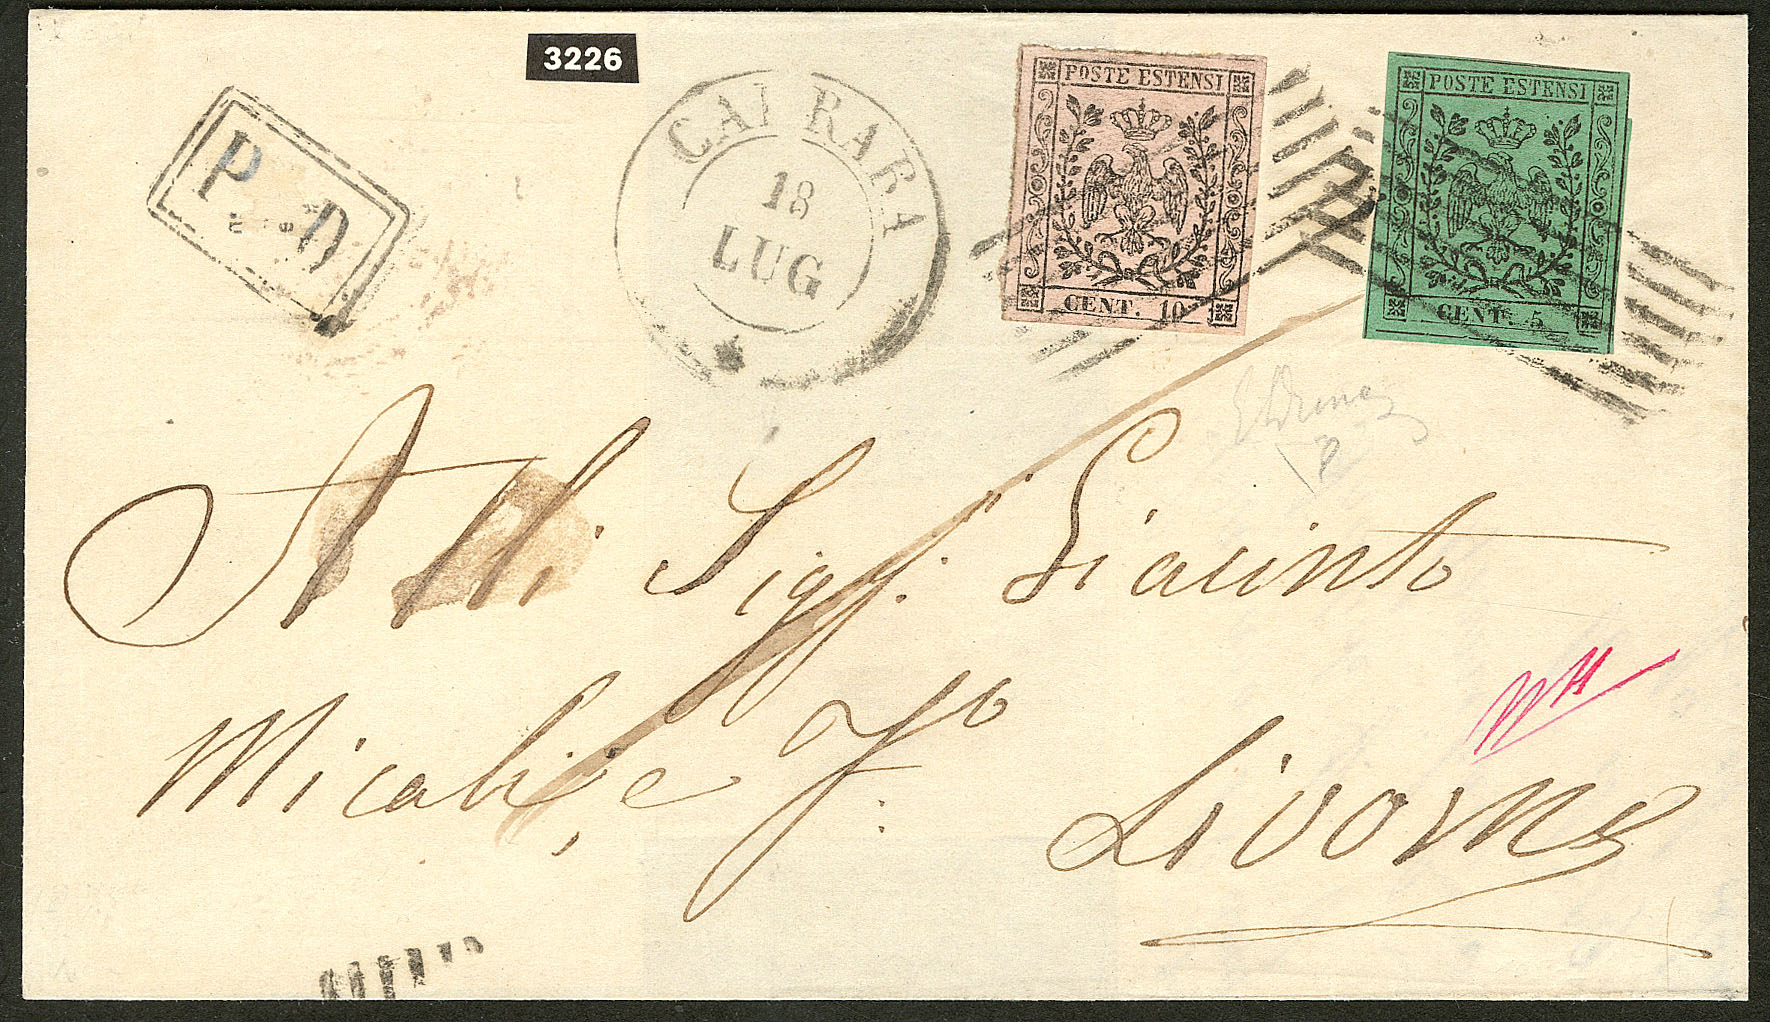 3226
P.D
CARRARA
18
LUG
POSTE ESTENSI
CENT. 10
POSTE ESTENSI
CENT. 5
Alli Sigg.ri Giacinto
Micali e Fo
Livorno